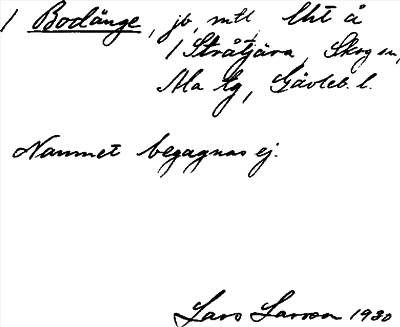 1 Bodänge, jb, mtl, Uht å
1 Stråtjära, Skog sn,
Ala tg, Gävleb. l.
Namnet begagnas ej.
Lars Larson 1930